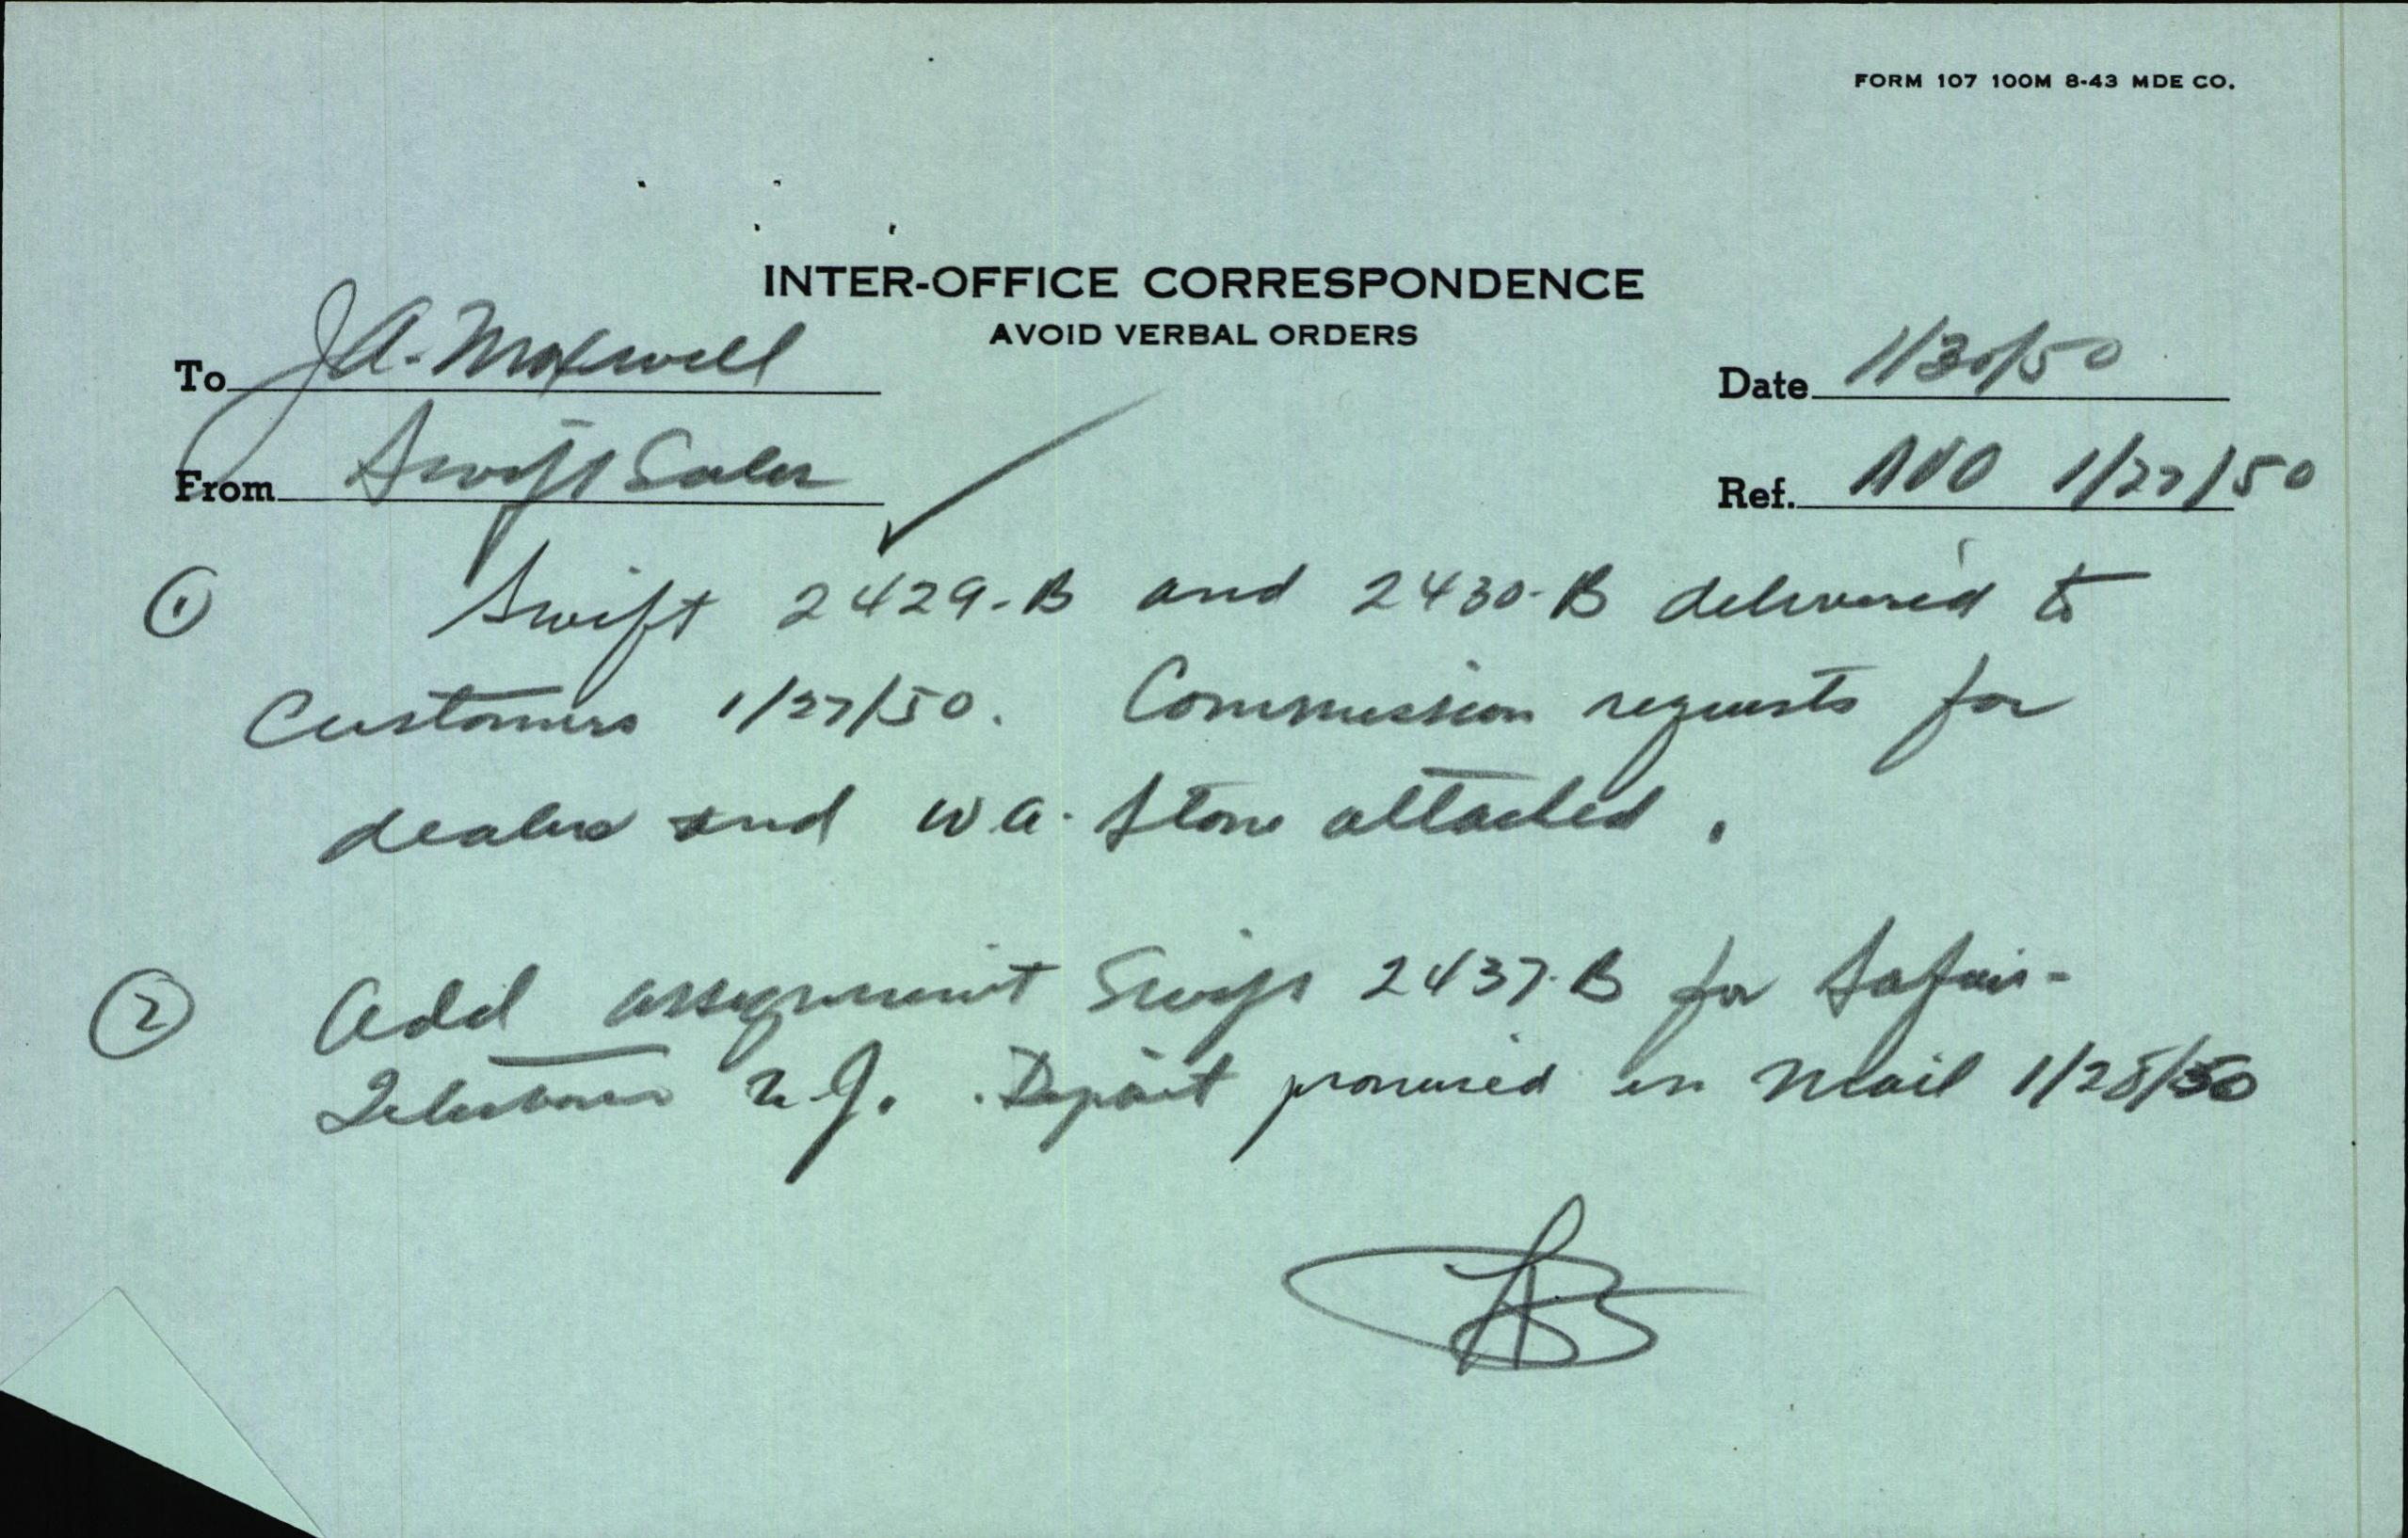 FORM 107 100M 8-43 MDE CO.
INTER-OFFICE CORRESPONDENCE
AVOID VERBAL ORDERS
To J.A. Maxwell
Date 1/30/50
From Swift Sales
Ref. 1/27/50
① Swift 2429-B and 2430-B delivered to
Customers 1/27/50. Commission requests for
dealer and W.A. Stone attached.
② Add assignment Swift 2437-B for Safair-
N.J. Deposit promised in mail 1/28/50